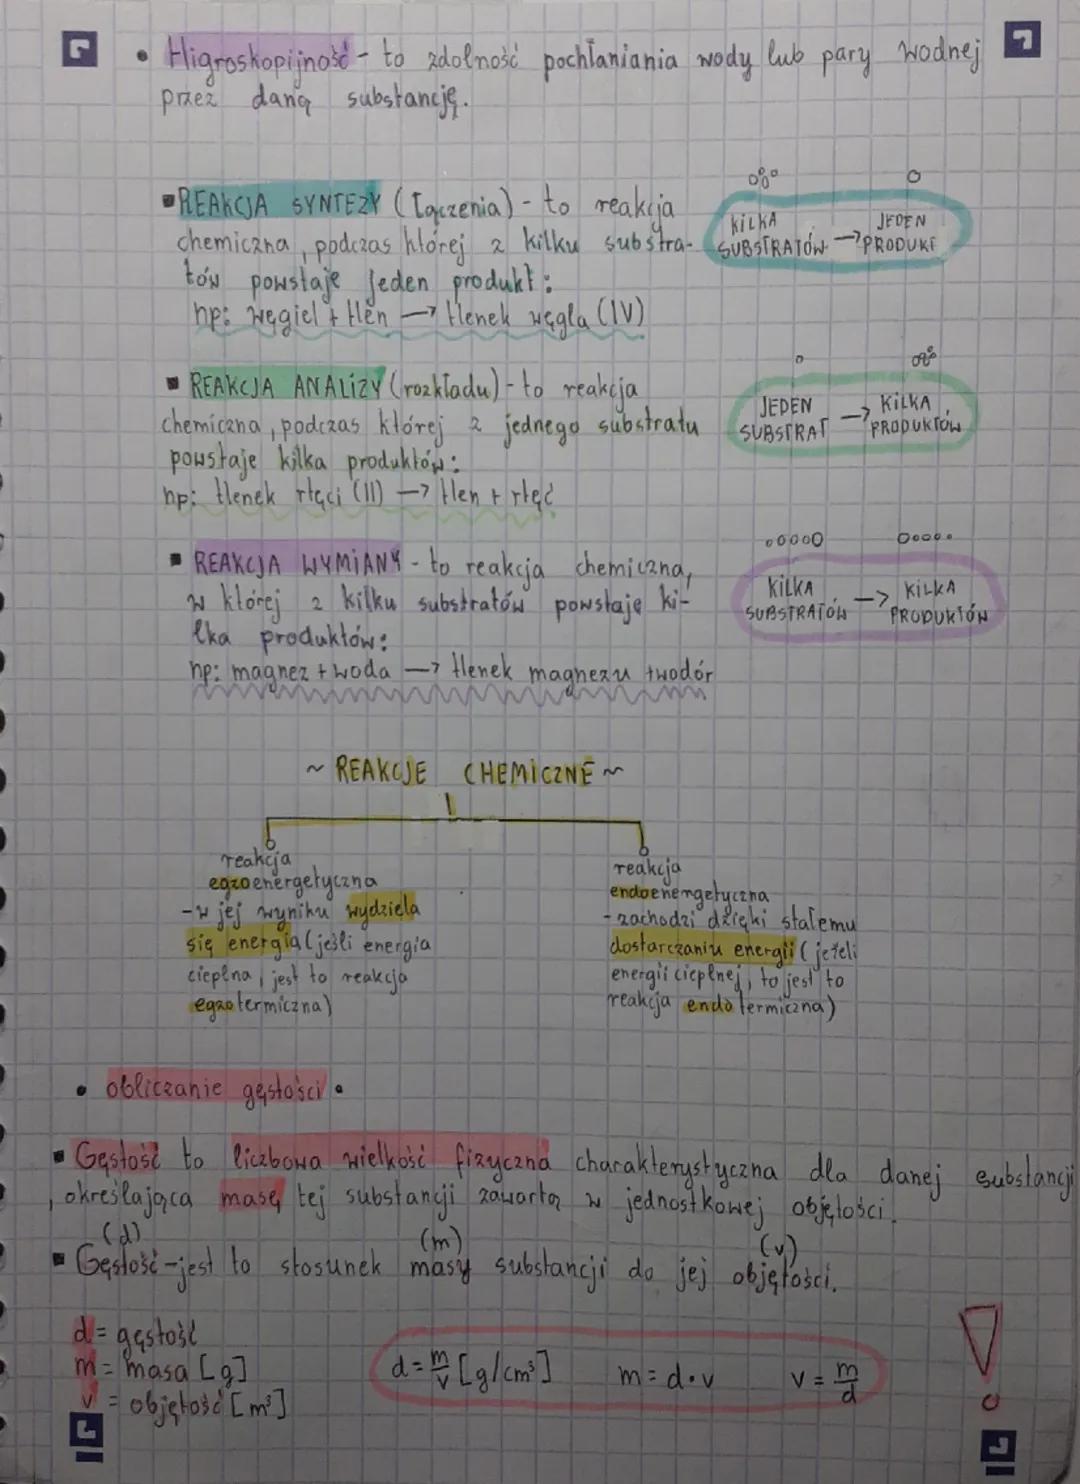 • Higroskopijność - to zdolność pochłaniania wody lub pary wodnej
przez daną substancję.
▪ REAKCJA SYNTEZY (łączenia) - to reakcja
chemiczna, podczas której z kilku substra-
tów powstaje jeden produkt:
np: węgiel + tlen → tlenek węgla (IV)
KILKA SUBSTRATÓW → JEDEN PRODUKT
▪ REAKCJA ANALIZY (rozkładu) - to reakcja
chemiczna, podczas której z jednego substratu
powstaje kilka produktów:
np: tlenek rtęci (II) → tlen + rtęć
JEDEN SUBSTRAT → KILKA PRODUKTÓW
▪ REAKCJA WYMIANY - to reakcja chemiczna,
w której z kilku substratów powstaję ki-
lka produktów:
np: magnez + woda → tlenek magnezu + wodór
KILKA SUBSTRATÓW → KILKA PRODUKTÓW
~ REAKCJE CHEMICZNE ~
reakcja
egzoenergetyczna
- w jej wyniku wydziela
się energia (jeśli energia
cieplna, jest to reakcja
egzotermiczna)
reakcja
endoenergetyczna
- zachodzi dzięki stałemu
dostarczaniu energii (jeżeli
energii cieplnej, to jest to
reakcja endotermiczna)
• obliczanie gęstości •
▪ Gęstość to liczbowa wielkość fizyczna charakterystyczna dla danej substancji
, określająca masę tej substancji zawartą w jednostkowej objętości.
(d) (m) (v)
▪ Gęstość - jest to stosunek masy substancji do jej objętości.
d = gęstość
m = masa [g]
v = objętość [m³]
d = m/v [g/cm³] m = d · v v = m/d
!